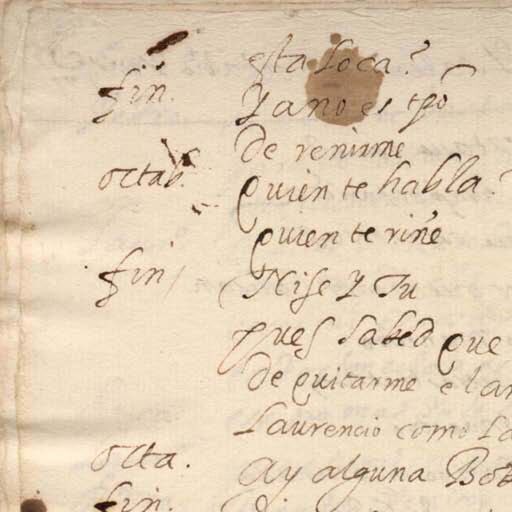 esta loca?
fin. Ya no es tpõ
de renirme
octab. quien te habla?
quien te riñe
fin Nise y Tu
pues sabed que
de quitarme el
Laurencio como
octa. ay alguna
fin.